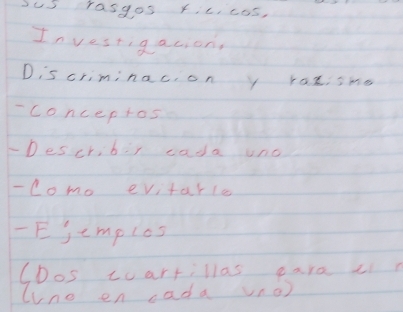 sus rasgos ficicos.
Investigacion.
Discriminacion y razismo
-Conceptos
-Describir cada uno
-Como evitarlo
-Ejemplos
(Dos cuartillas para el
(uno en cada uno)